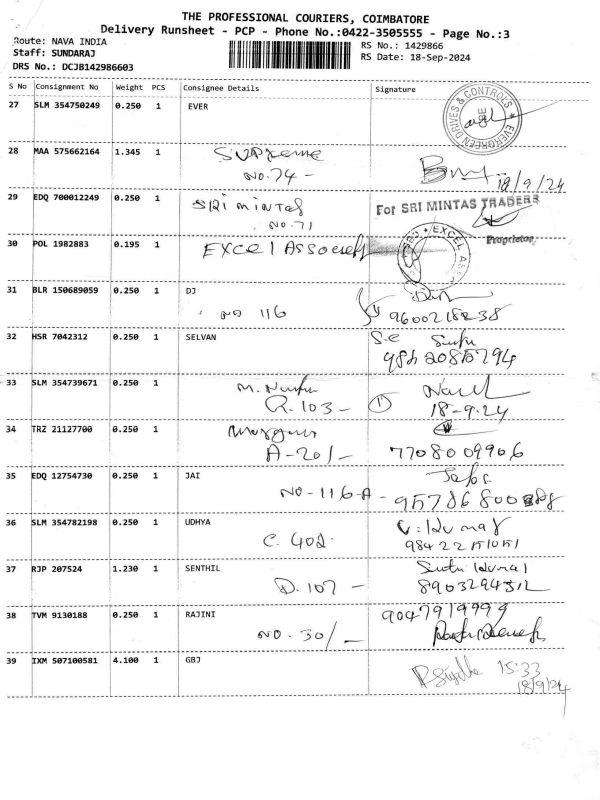 THE PROFESSIONAL COURIERS, COIMBATORE
Delivery Runsheet - PCP - Phone No.:0422-3505555 - Page No.:3
Route: NAVA INDIA
RS No.: 1429866
Staff: SUNDARAJ
RS Date: 18-Sep-2024
DRS No.: DCJB142986603
S No Consignment No Weight PCS Consignee Details Signature
27 SLM 354750249 0.250 1 EVER
EVERGREEN DRIVES & CONTROLS
28 MAA 575662164 1.345 1 Supreme
NO.74 -
18/9/24
29 EDQ 700012249 0.250 1 SRI mintas
NO.71
For SRI MINTAS TRADERS
Proprietor
30 POL 1982883 0.195 1 EXCEL Associets
EXCEL
31 BLR 150689059 0.250 1 DJ
NO 116 9600218238
32 HSR 7042312 0.250 1 SELVAN
33 SLM 354739671 0.250 1
Q.103 - 18-9-24
34 TRZ 21127700 0.250 1
A-201- 7708009906
35 EDQ 12754730 0.250 1 JAI
NO-116-A-
36 SLM 354782198 0.250 1 UDHYA
C.402.
37 RJP 207524 1.230 1 SENTHIL
D.107 -
38 TVM 9130188 0.250 1 RAJINI
9047919999
NO.301-
39 IXM 507100581 4.100 1 GBJ
15:33
18/9/24